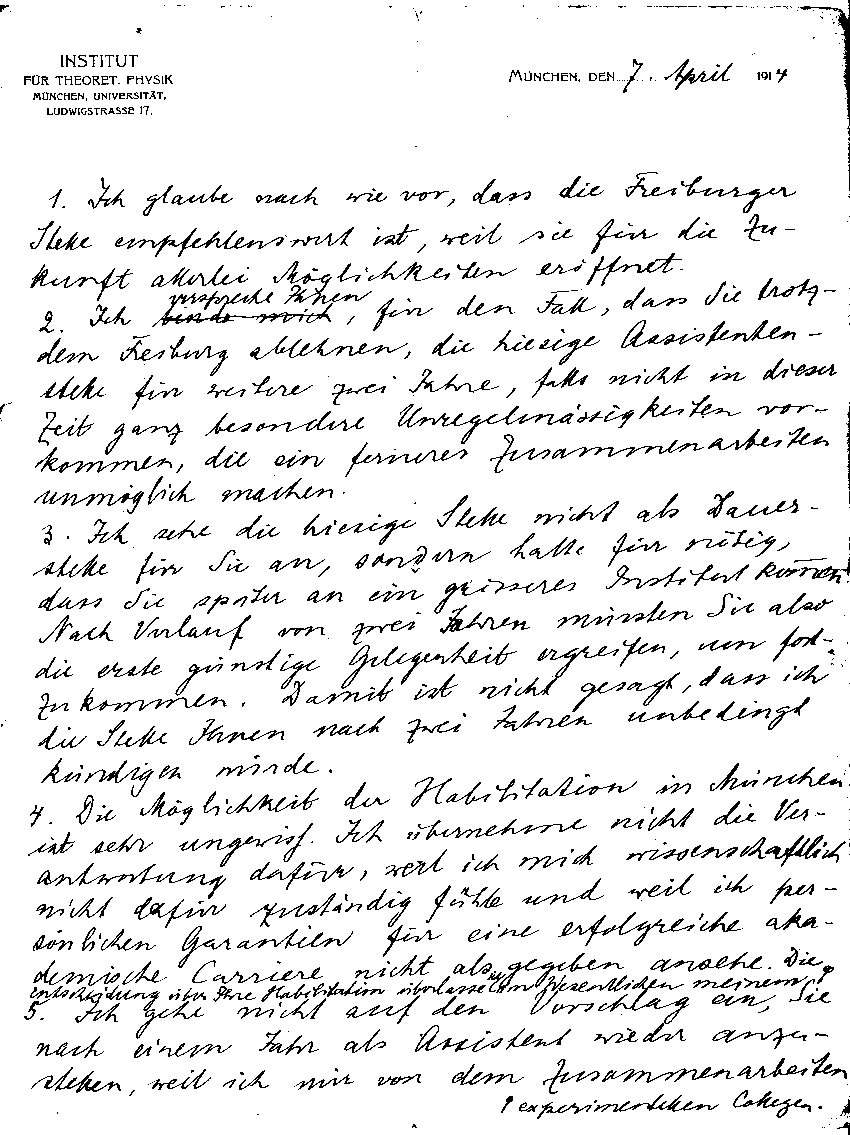 INSTITUT
FÜR THEORET. PHYSIK
MÜNCHEN, UNIVERSITÄT,
LUDWIGSTRASSE 17.
MÜNCHEN, DEN 7. April 1914
1. Ich glaube nach wie vor, dass die Freiburger
Stelle empfehlenswert ist, weil sie für die Zu-
kunft allerlei Möglichkeiten eröffnet.
verspreche Ihnen
2. Ich binde mich, für den Fall, dass Sie trotz-
dem Freiburg ablehnen, die hiesige Assistenten-
stelle für weitere zwei Jahre, falls nicht in dieser
Zeit ganz besondere Unregelmässigkeiten vor-
kommen, die ein ferneres Zusammenarbeiten
unmöglich machen.
3. Ich sehe die hiesige Stelle nicht als Dauer-
stelle für Sie an, sondern halte für nötig,
dass Sie später an ein grösseres Institut kommen.
Nach Verlauf von zwei Jahren müssten Sie also
die erste günstige Gelegenheit ergreifen, um fort-
zukommen. Damit ist nicht gesagt, dass ich
die Stelle Ihnen nach zwei Jahren unbedingt
kündigen würde.
4. Die Möglichkeit der Habilitation in München
ist sehr ungewiss. Ich übernehme nicht die Ver-
antwortung dafür, weil ich mich wissenschaftlich
nicht dafür zuständig fühle und weil ich per-
sönlichen Garantien für eine erfolgreiche aka-
demische Carriere nicht als gegeben ansehe. Die
Entscheidung über Ihre Habilitation überlasse ich im Wesentlichen meinem
5. Ich gehe nicht auf den Vorschlag ein, Sie
nach einem Jahr als Assistent wieder anzu-
stellen, weil ich mir von dem Zusammenarbeiten
experimentellen Collegen.